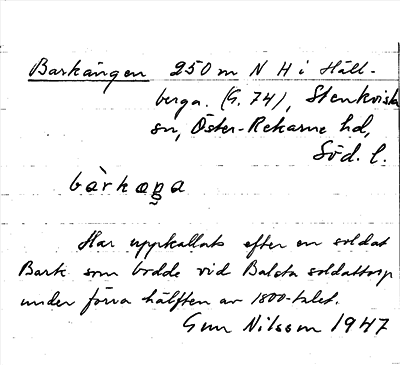 Barkängen 250 m N H i Häll-
berga. (G. 74), Stenkvista
sn, Öster-Rekarne hd,
Söd. l.
bàrkæŋa
Har uppkallats efter en soldat
Bark som bodde vid Balsta soldattorp
under förra hälften av 1800-talet.
Gun Nilsson 1947